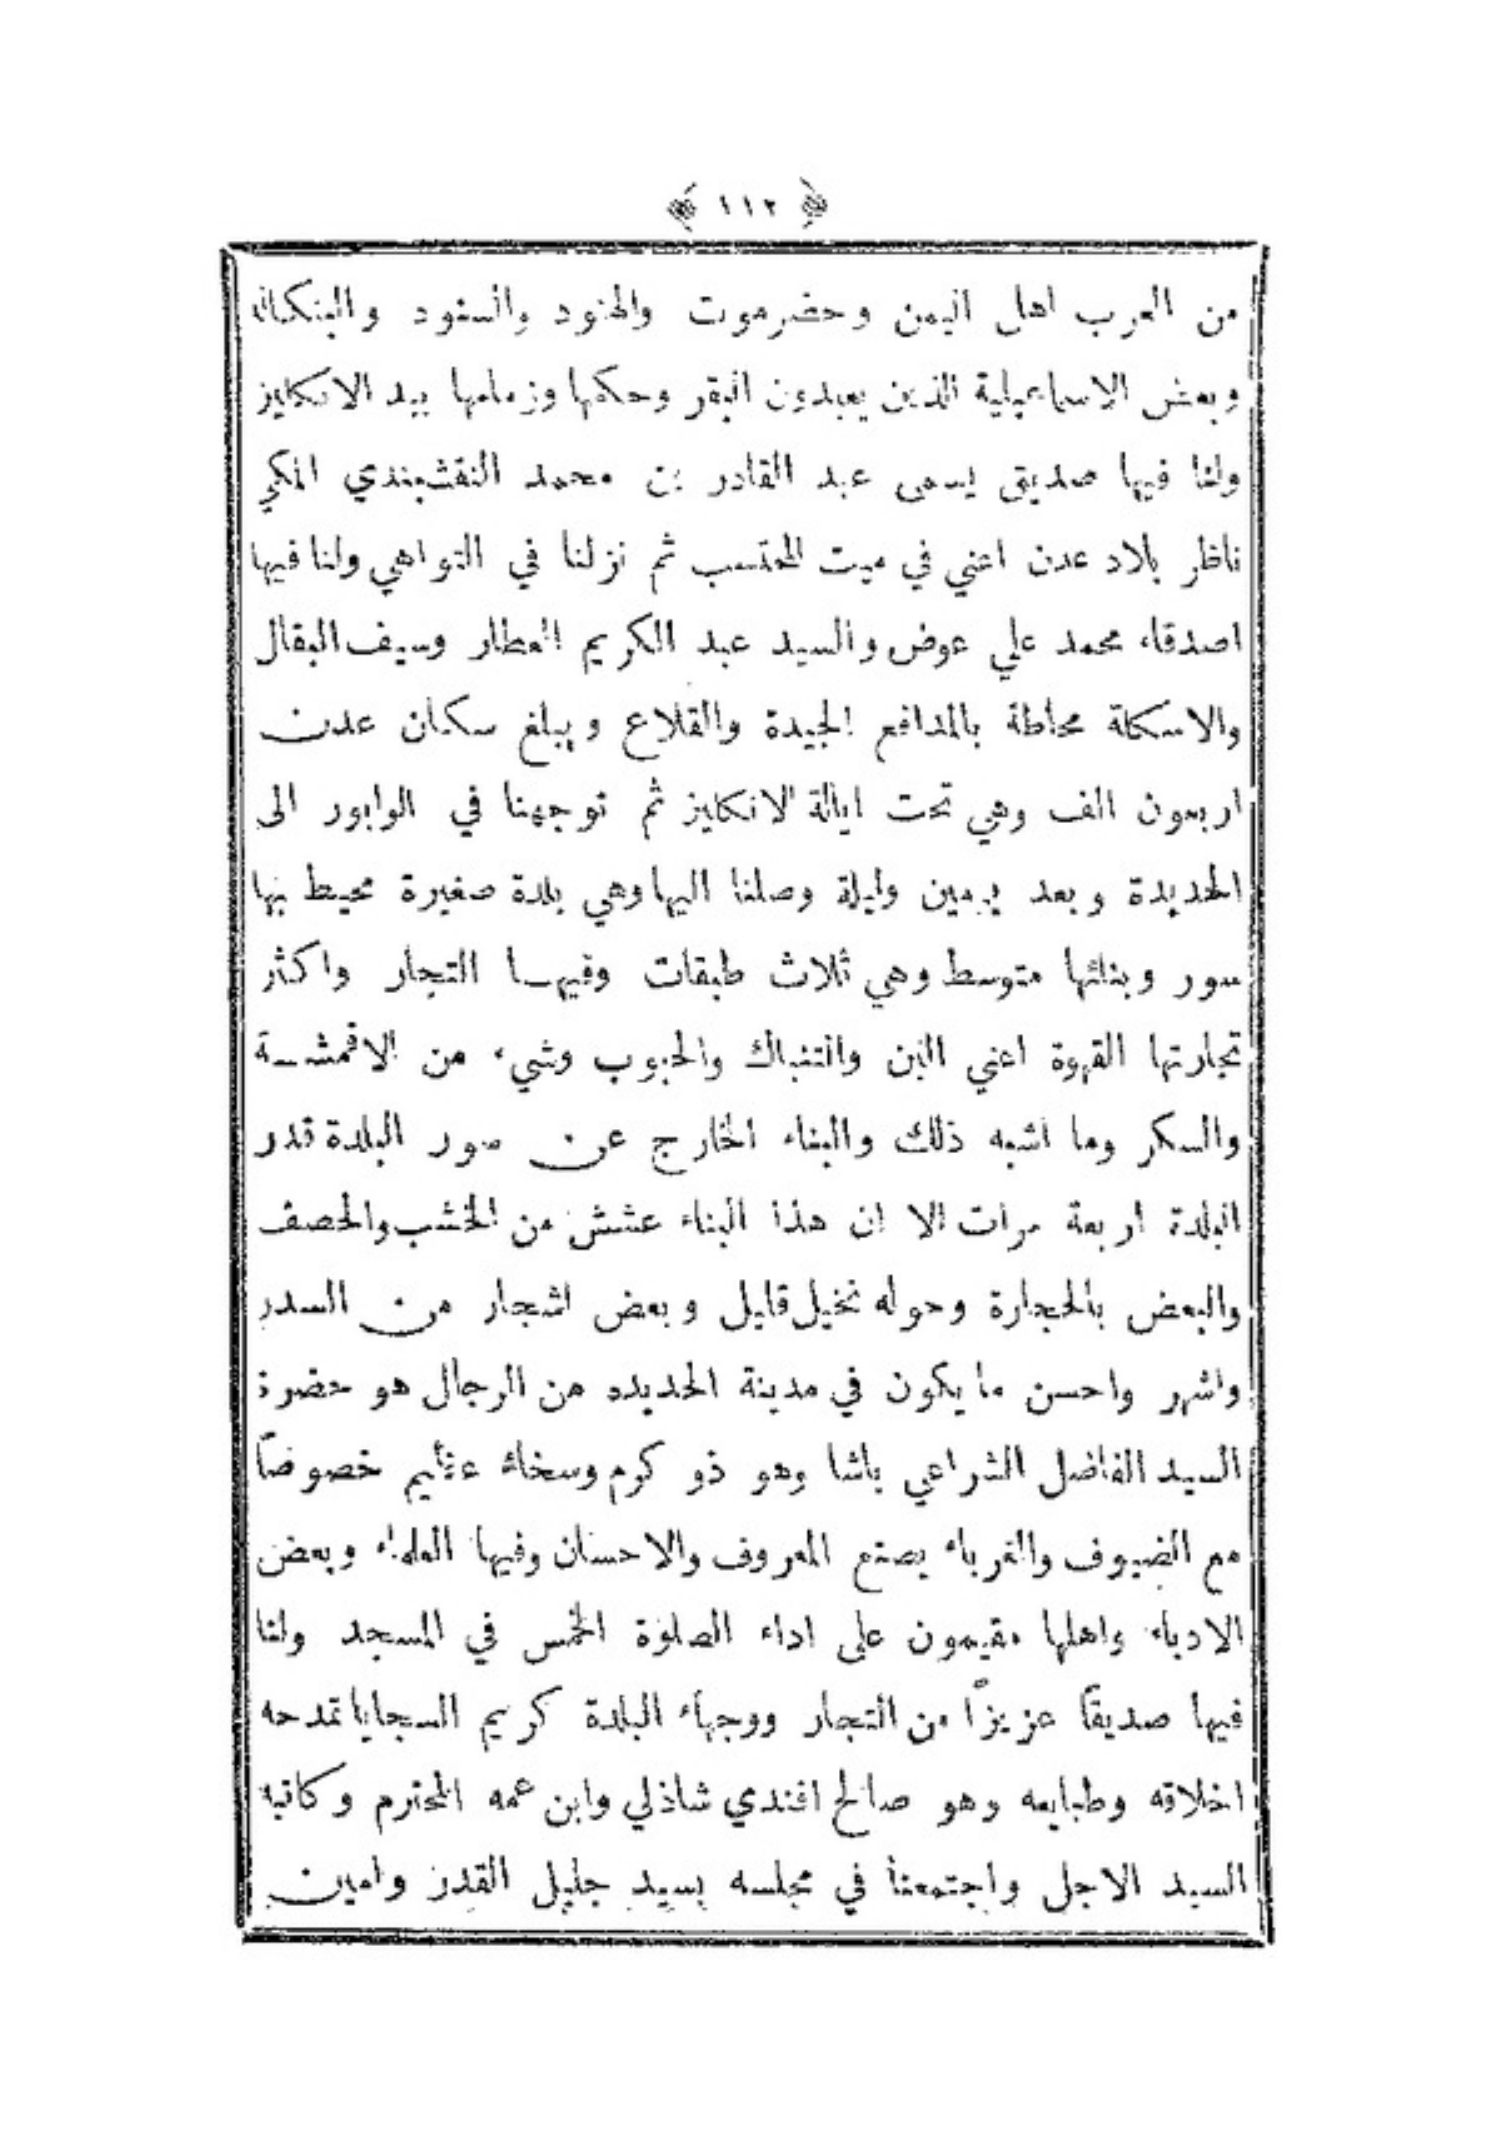 ﴿ ١١٢ ﴾
من العرب اهل اليمن وحضرموت والهنود والسنود والبنكاله
وبعض الاسماعيلية الذين يعبدون البقر وحكمها وزمامها بيد الانكليز
ولنا فيها صديق يسمى عبد القادر بن محمد النقشبندي المكي
ناظر بلاد عدن اعني في ميت المحتسب ثم نزلنا في التواهي ولنا فيها
اصدقاء محمد علي عوض والسيد عبد الكريم العطار وسيف البقال
والاسكلة محاطة بالمدافع الجيدة والقلاع ويبلغ سكان عدن
اربعون الف وهي تحت ايالة الانكليز ثم توجهنا في الوابور الى
الحديدة وبعد يومين وليلة وصلنا اليها وهي بلدة صغيرة محيط بها
سور وبنائها متوسط وهي ثلاث طبقات وفيها التجار واكثر
تجارتها القهوة اعني البن والتنباك والحبوب وشيء من الاقمشة
والسكر وما اشبه ذلك والبناء الخارج عن سور البلدة قدر
البلدة اربعة مرات الا ان هذا البناء عشش من الخشب والخصف
والبعض بالحجارة وحوله نخيل قليل وبعض اشجار من السدر
واشهر واحسن ما يكون في مدينة الحديده من الرجال هو حضرة
السيد الفاضل الشراعي باشا وهو ذو كرم وسخاء عظيم خصوصاً
مع الضيوف والغرباء يصنع المعروف والاحسان وفيها العلماء وبعض
الادباء واهلها مقيمون على اداء الصلوة الخمس في المسجد ولنا
فيها صديقاً عزيزاً من التجار ووجهاء البلدة كريم السجايا تمدحه
اخلاقه وطبايعه وهو صالح افندي شاذلي وابن عمه المحترم وكاتبه
السيد الاجل واجتمعنا في مجلسه بسيد جليل القدر وامين